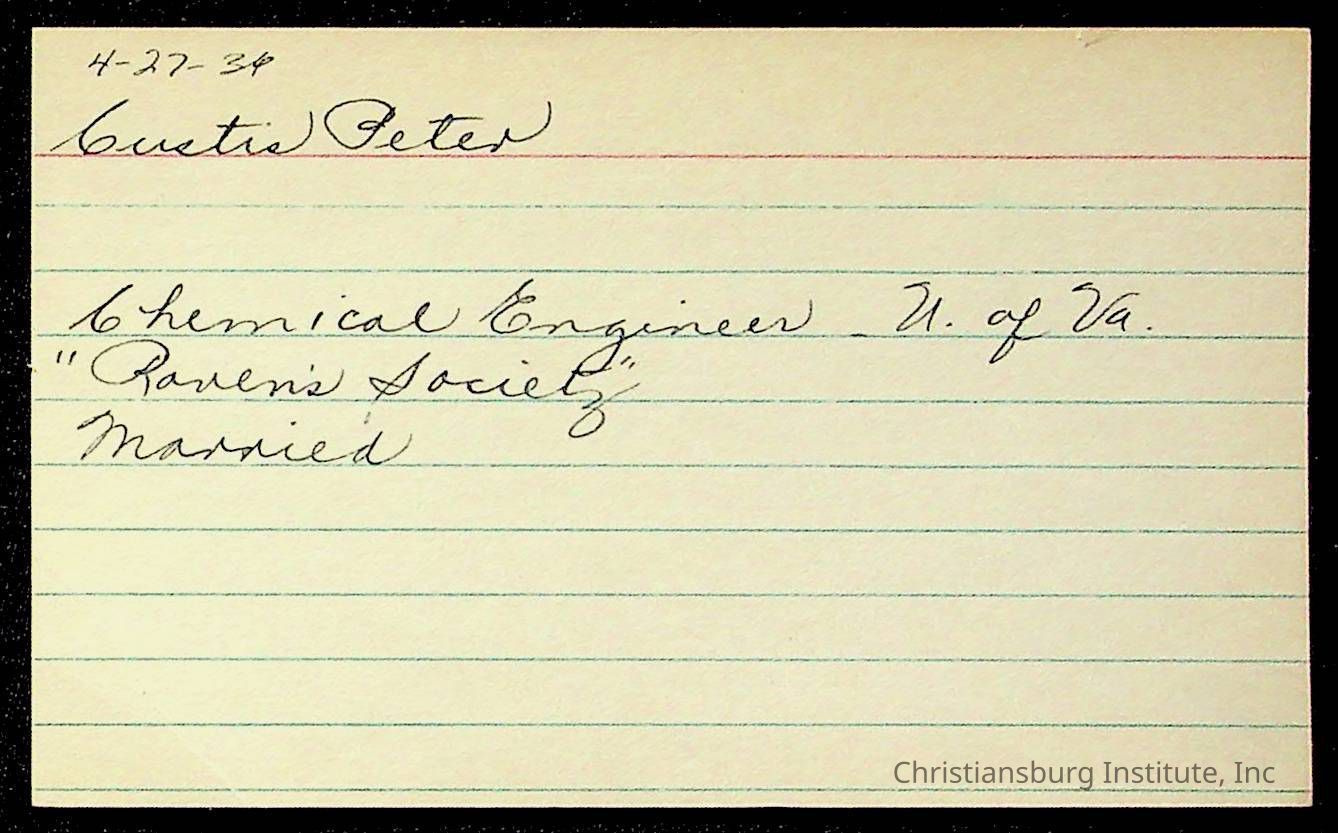 4-27-36
Custis Peter
Chemical Engineer - U. of Va.
"Raven's Society"
Married
Christiansburg Institute, Inc